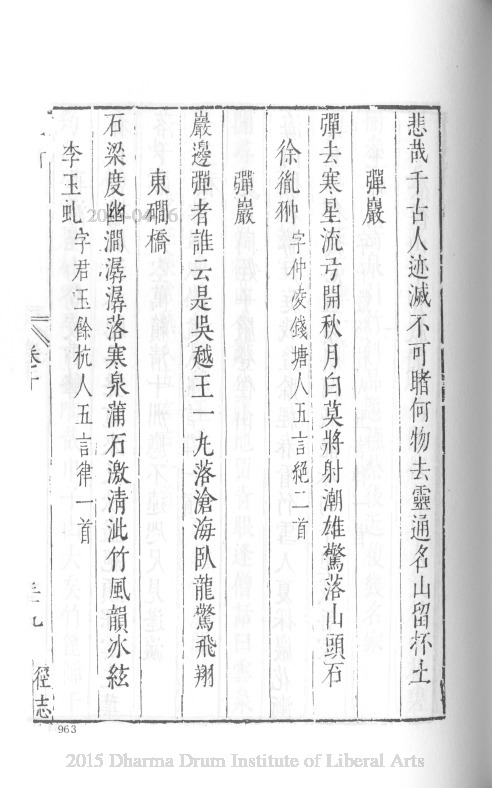 悲哉千古人迹滅不可睹何物去靈通名山留杯土
彈巖
彈去寒星流弓開秋月白莫將射潮雄驚落山頭石
徐胤翀 字仲凌錢塘人五言絕二首
彈巖
巖邊彈者誰云是吳越王一丸落滄海臥龍驚飛翔
東磵橋
石梁度幽澗潺潺落寒泉蒲石激清泚竹風韻冰絃
李玉虬 字君玉餘杭人五言律一首
卷十
三十九
徑志
963
2015 Dharma Drum Institute of Liberal Arts